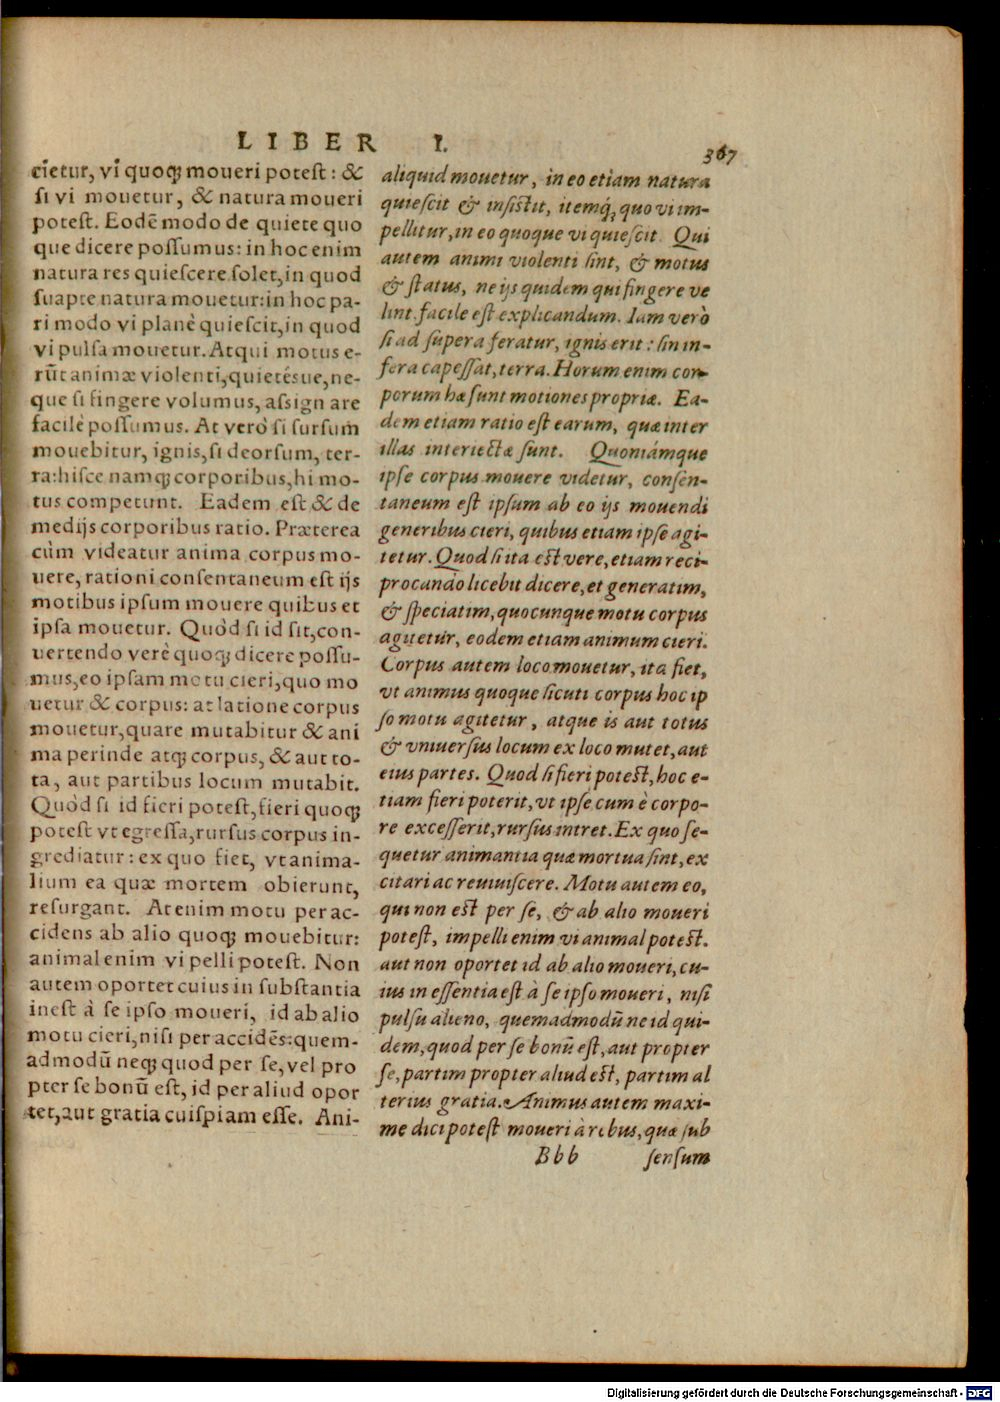 LIBER I.
367
cietur, vi quoq; moueri potest: &
si vi mouetur, & natura moueri
potest. Eodē modo de quiete quo
que dicere possumus: in hoc enim
natura res quiescere solet, in quod
suapte natura mouetur: in hoc pa-
ri modo vi planè quiescit, in quod
vi pulsa mouetur. Atqui motus e-
rūt animæ violenti, quietésue, ne-
que si fingere volumus, assignare
facilè possumus. At verò si sursum
mouebitur, ignis, si deorsum, ter-
ra: hisce namq; corporibus, hi mo-
tus competunt. Eadem est & de
medijs corporibus ratio. Præterea
cùm videatur anima corpus mo-
uere, rationi consentaneum est ijs
motibus ipsum mouere quibus et
ipsa mouetur. Quòd si id sit, con-
uertendo verè quoq; dicere possu-
mus, eo ipsam motu cieri, quo mo
uetur & corpus: at latione corpus
mouetur, quare mutabitur & ani
ma perinde atq; corpus, & aut to-
ta, aut partibus locum mutabit.
Quòd si id fieri potest, fieri quoq;
potest vt egressa, rursus corpus in-
grediatur: ex quo fiet, vt anima-
lium ea quæ mortem obierunt,
resurgant. At enim motu per ac-
cidens ab alio quoq; mouebitur:
animal enim vi pelli potest. Non
autem oportet cuius in substantia
inest à se ipso moueri, id ab alio
motu cieri, nisi per accidēs: quem-
admodū neq; quod per se, vel pro
pter se bonū est, id per aliud opor
tet, aut gratia cuispiam esse. Ani-
aliquid mouetur, in eo etiam natura
quiescit & insistit, itemq́; quo vi im-
pellitur, in eo quoque vi quiescit. Qui
autem animi violenti sint, & motus
& status, ne ijs quidem qui fingere ve
lint facile est explicandum. Iam verò
si ad supera feratur, ignis erit: sin in-
fera capessat, terra. Horum enim cor-
porum hæ sunt motiones propriæ. Ea-
dem etiam ratio est earum, quæ inter
illas interiectæ sunt. Quoniámque
ipse corpus mouere videtur, consen-
taneum est ipsum ab eo ijs mouendi
generibus cieri, quibus etiam ipse agi-
tetur. Quod si ita est vere, etiam reci-
procando licebit dicere, et generatim,
& speciatim, quocunque motu corpus
agitetur, eodem etiam animum cieri.
Corpus autem loco mouetur, ita fiet,
vt animus quoque sicuti corpus hoc ip
so motu agitetur, atque is aut totus
& vniuersus locum ex loco mutet, aut
eius partes. Quod si fieri potest, hoc e-
tiam fieri poterit, vt ipse cum è corpo-
re excesserit, rursus intret. Ex quo se-
quetur animantia quæ mortua sint, ex
citari ac reuiuiscere. Motu autem eo,
qui non est per se, & ab alio moueri
potest, impelli enim vi animal potest.
aut non oportet id ab alio moueri, cu-
ius in essentia est à se ipso moueri, nisi
pulsu alieno, quemadmodū ne id qui-
dem, quod per se bonū est, aut propter
se, partim propter aliud est, partim al
terius gratia. Animus autem maxi-
me dici potest moueri à rebus, quæ sub
Bbb sensum
Digitalisierung gefördert durch die Deutsche Forschungsgemeinschaft - DFG